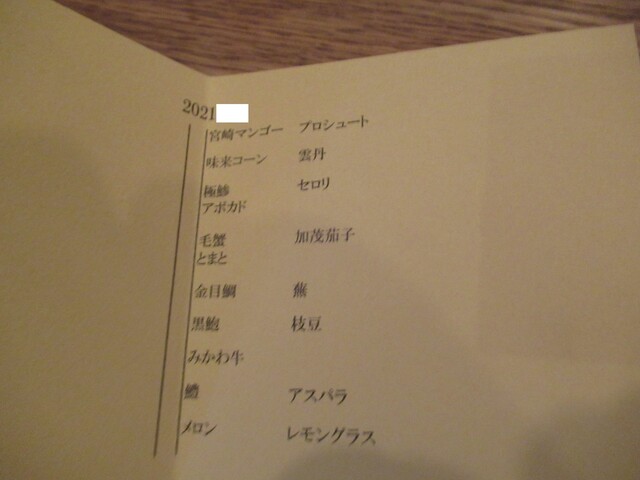 2021
宮崎マンゴー プロシュート
味来コーン 雲丹
極鯵 セロリ
アボカド
毛蟹 加茂茄子
とまと
金目鯛 蕪
黒鮑 枝豆
みかわ牛
鱧 アスパラ
メロン レモングラス